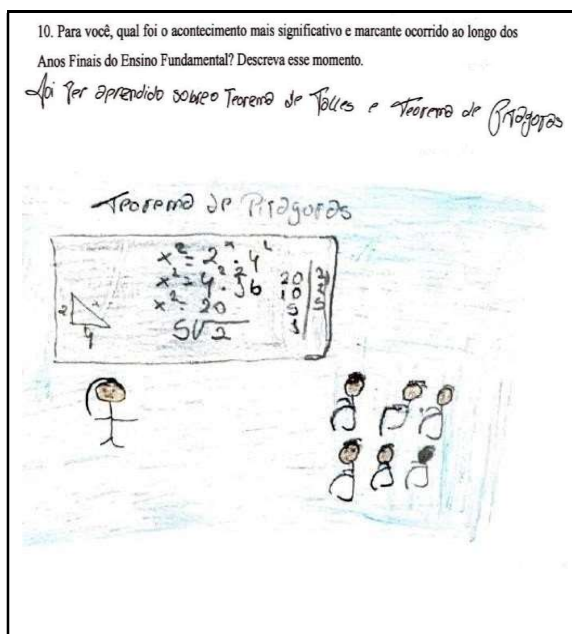 10. Para você, qual foi o acontecimento mais significativo e marcante ocorrido ao longo dos
Anos Finais do Ensino Fundamental? Descreva esse momento.
Foi ter aprendido sobre o Teorema de Talles e Teorema de Pitágoras
Teorema de Pitágoras
x² = 2² · 4²
x² = 4 · 16
x² = 20
5√2
2
x
4
20 | 2
10 | 2
5 | 5
1